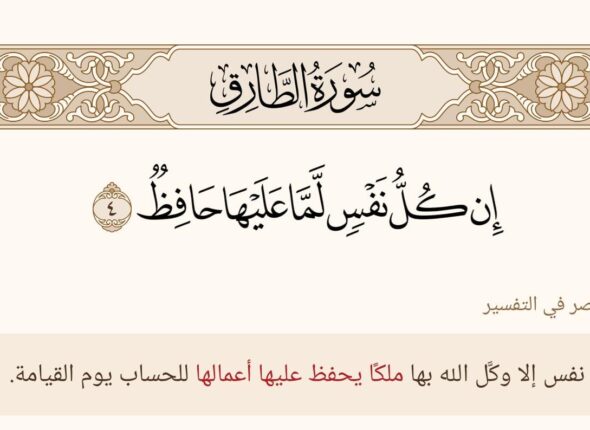 سُورَةُ الطَّارِقِ
إِن كُلُّ نَفْسٍ لَّمَّا عَلَيْهَا حَافِظٌ ٤
في التفسير
نفس إلا وكَّل الله بها ملكًا يحفظ عليها أعمالها للحساب يوم القيامة.